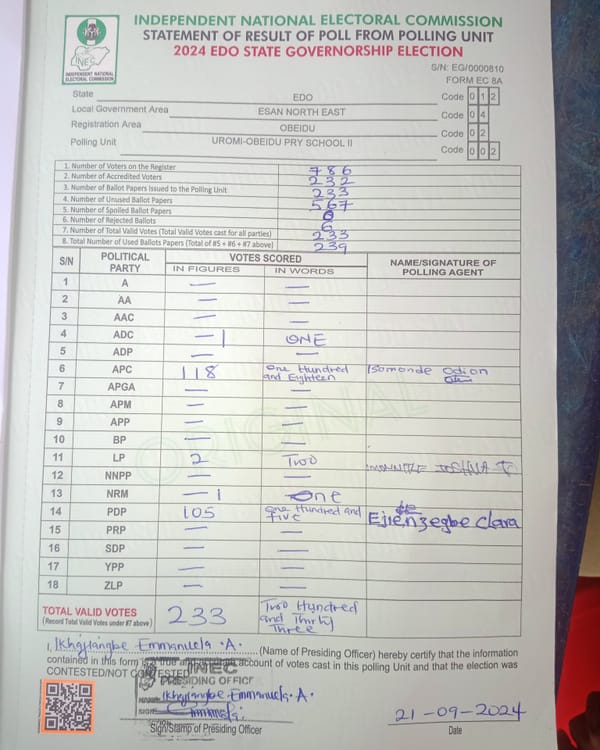 INDEPENDENT NATIONAL ELECTORAL COMMISSION
STATEMENT OF RESULT OF POLL FROM POLLING UNIT
2024 EDO STATE GOVERNORSHIP ELECTION
INEC
INDEPENDENT NATIONAL
ELECTORAL COMMISSION
S/N: EG/0000810
FORM EC 8A
State EDO Code 0 1 2
Local Government Area ESAN NORTH EAST Code 0 4
Registration Area OBEIDU Code 0 2
Polling Unit UROMI-OBEIDU PRY SCHOOL II Code 0 0 2
1. Number of Voters on the Register 786
2. Number of Accredited Voters 232
3. Number of Ballot Papers Issued to the Polling Unit 233
4. Number of Unused Ballot Papers 567
5. Number of Spoiled Ballot Papers
6. Number of Rejected Ballots 6
7. Number of Total Valid Votes (Total Valid Votes cast for all parties) 233
8. Total Number of Used Ballots Papers (Total of #5 + #6 + #7 above) 239
S/N POLITICAL PARTY VOTES SCORED NAME/SIGNATURE OF POLLING AGENT
IN FIGURES IN WORDS
1 A — —
2 AA — —
3 AAC — —
4 ADC — 1 ONE
5 ADP — —
6 APC 118 One Hundred and Eighteen Isomonde Odion
7 APGA — —
8 APM — —
9 APP — —
10 BP — —
11 LP 2 Two JOSHUA
12 NNPP — —
13 NRM — 1 One
14 PDP 105 One Hundred and five Ejienzegbe Clara
15 PRP — —
16 SDP — —
17 YPP — —
18 ZLP — —
TOTAL VALID VOTES 233 Two Hundred and Thirty Three
(Record Total Valid Votes under #7 above)
ORIGINAL
I, Ikhajiangbe Emmanuela .A. (Name of Presiding Officer) hereby certify that the information
contained in this form is a true and account of votes cast in this polling Unit and that the election was
CONTESTED/NOT CONTESTED
INEC
PRESIDING OFFICER
Ikhajiangbe Emmanuela. A.
21-09-2024
Sign/Stamp of Presiding Officer Date